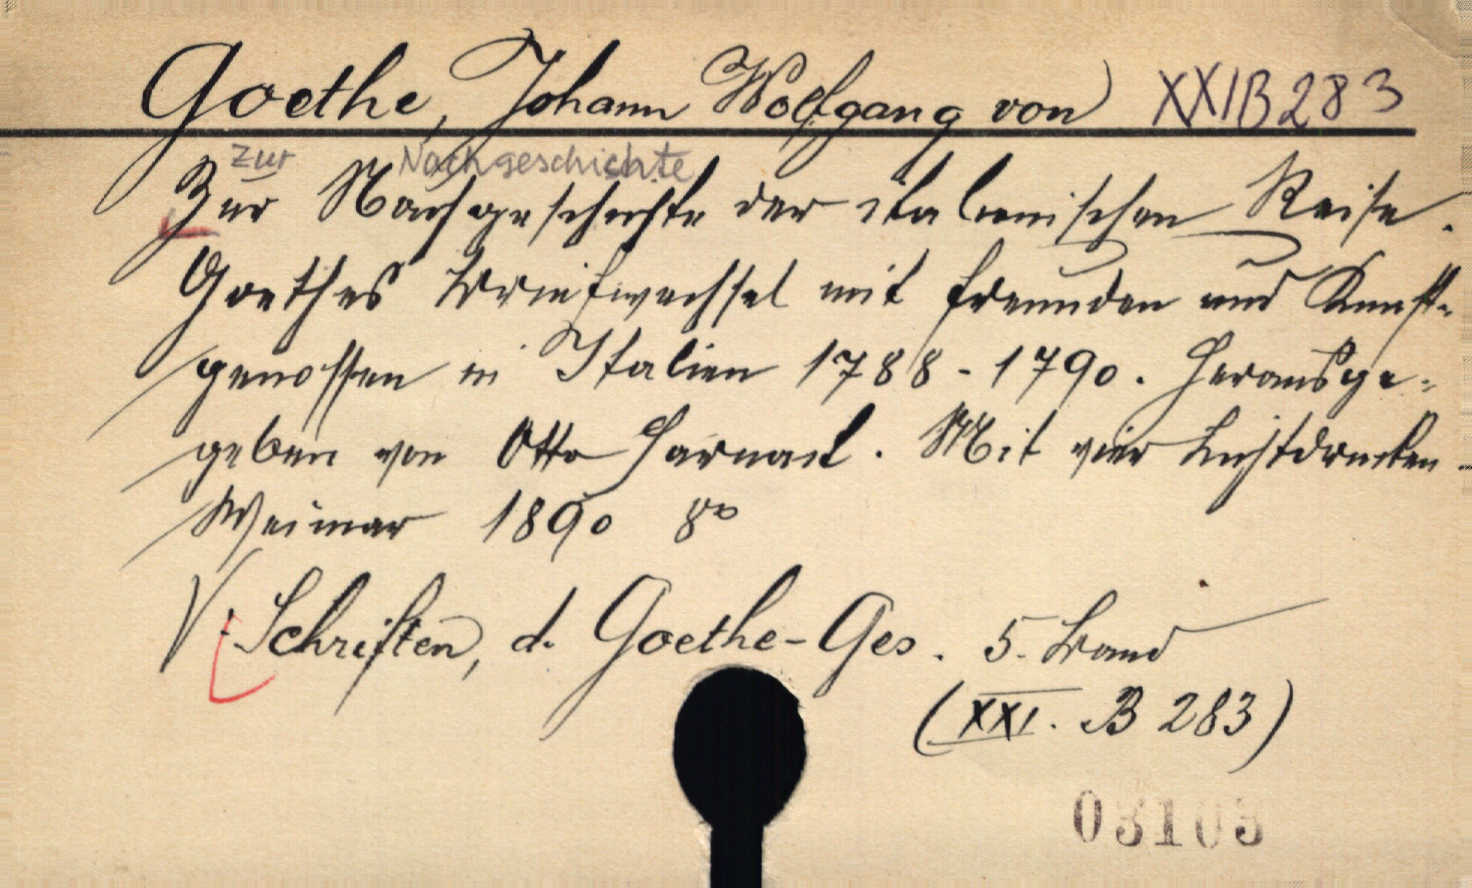 Goethe, Johann Wolfgang von) XXIB283
zur Nachgeschichte
Zur Nachgeschichte der italienischen Reise.
Goethes Briefwechsel mit Freunden und Kunst-
genossen in Italien 1788-1790. Herausge-
geben von Otto Harnack. Mit vier Lichtdrucken.
Weimar 1890 8°
V: Schriften, d. Goethe-Ges. 5. Band
(XXI. B 283)
03103